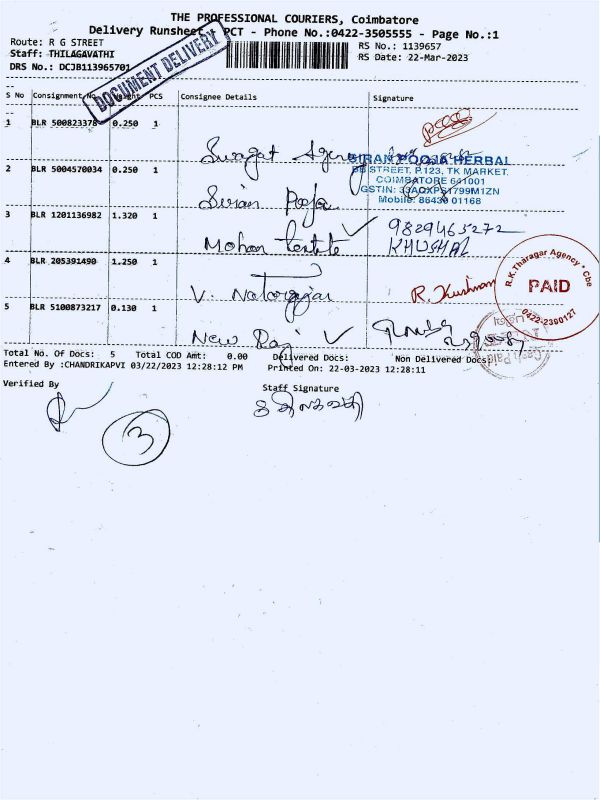 THE PROFESSIONAL COURIERS, Coimbatore
Delivery Runsheet PCT - Phone No.:0422-3505555 - Page No.:1
Route: R G STREET
RS No.: 1139657
Staff: THILAGAVATHI
RS Date: 22-Mar-2023
DRS No.: DCJB113965701
DOCUMENT DELIVERY
S No Consignment No Weight PCS Consignee Details Signature
1 BLR 500823378 0.250 1
2 BLR 5004570034 0.250 1
SIRAN POOJA HERBAL
STREET, P.123, TK MARKET,
COIMBATORE 641001
Mobile: 86430 01168
3 BLR 1201136982 1.320 1
Mohan Textile
9829465272
KHUSHAL
4 BLR 205391490 1.250 1
V. Natarajan
R.K.Tharagar Agency * Cbe
PAID
0422-2390127
5 BLR 5100873217 0.130 1
New Raj
Cash Paid
Total No. Of Docs: 5 Total COD Amt: 0.00 Delivered Docs: Non Delivered Docs:
Entered By :CHANDRIKAPVI 03/22/2023 12:28:12 PM Printed On: 22-03-2023 12:28:11
Verified By Staff Signature
திலகவதி
3